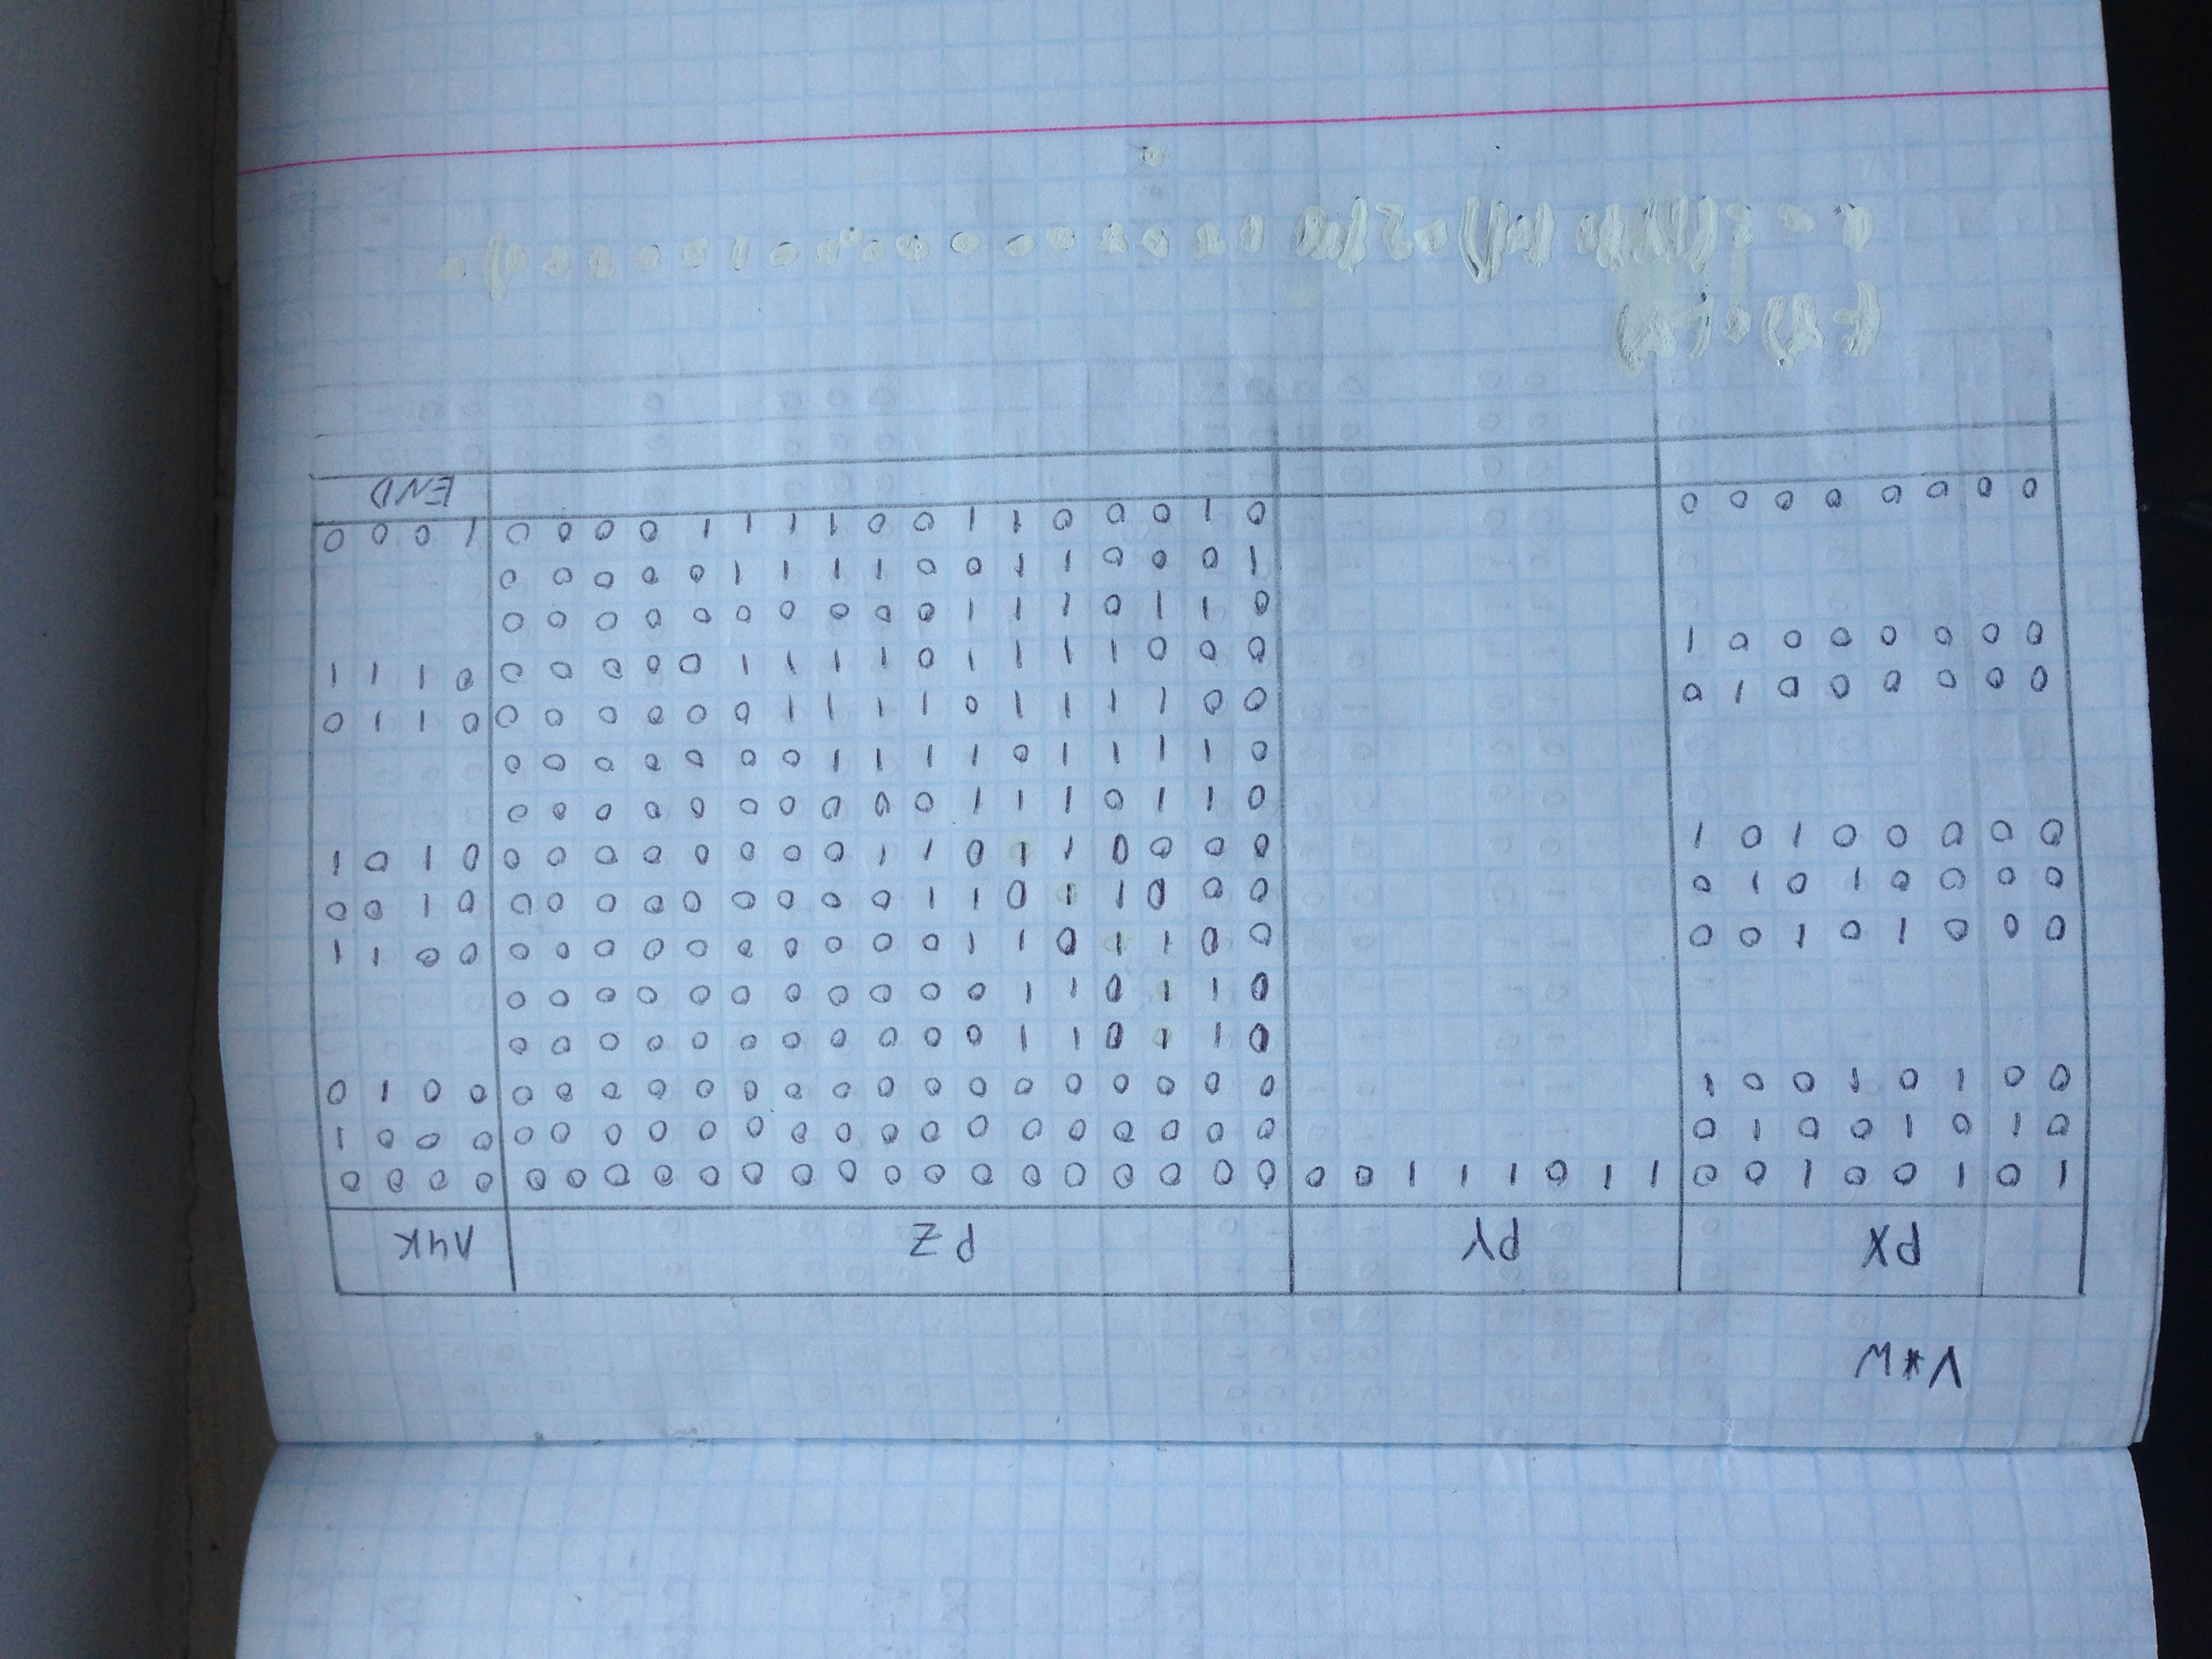 V*W
PX PY PZ ЛЧК
1 0 1 0 0 1 0 0 1 1 0 1 1 1 0 0 0 0 0 0 0 0 0 0 0 0 0 0 0 0 0 0 0 0 0 0 0
0 1 0 1 0 0 1 0 0 0 0 0 0 0 0 0 0 0 0 0 0 0 0 0 0 0 0 0 1
0 0 1 0 1 0 0 1 0 0 0 0 0 0 0 0 0 0 0 0 0 0 0 0 0 0 0 1 0
0 1 1 0 1 1 0 0 0 0 0 0 0 0 0 0 0
0 1 1 0 1 1 0 0 0 0 0 0 0 0 0 0 0
0 0 0 1 0 1 0 0 0 0 1 1 0 1 1 0 0 0 0 0 0 0 0 0 0 0 0 1 1
0 0 0 0 1 0 1 0 0 0 0 1 1 0 1 1 0 0 0 0 0 0 0 0 0 0 1 0 0
0 0 0 0 0 1 0 1 0 0 0 0 1 1 0 1 1 0 0 0 0 0 0 0 0 0 1 0 1
0 1 1 0 1 1 1 0 0 0 0 0 0 0 0 0 0
0 1 1 1 1 0 1 1 1 1 0 0 0 0 0 0 0
0 0 0 0 0 0 1 0 0 0 1 1 1 1 0 1 1 1 1 0 0 0 0 0 0 0 1 1 0
0 0 0 0 0 0 0 1 0 0 0 1 1 1 1 0 1 1 1 1 0 0 0 0 0 0 1 1 1
0 1 1 0 1 1 1 0 0 0 0 0 0 0 0 0 0
1 0 0 0 1 1 0 0 1 1 1 1 0 0 0 0 0
0 0 0 0 0 0 0 0 0 1 0 0 0 1 1 0 0 1 1 1 1 0 0 0 0 1 0 0 0
END